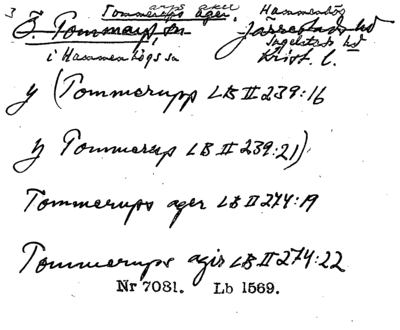 3 Tommerups ager. Hammenhög
Ö. Tommarp sn Järrestads hd
Ingelstads hd
i Hammenhögs sn Krist. l.
y (Tommerupp LB II 239:16
y Tommerup LB II 239:21)
Tommerups ager LB II 274:19
Tommerups agir LB II 274:22
Nr 7081. Lb 1569.